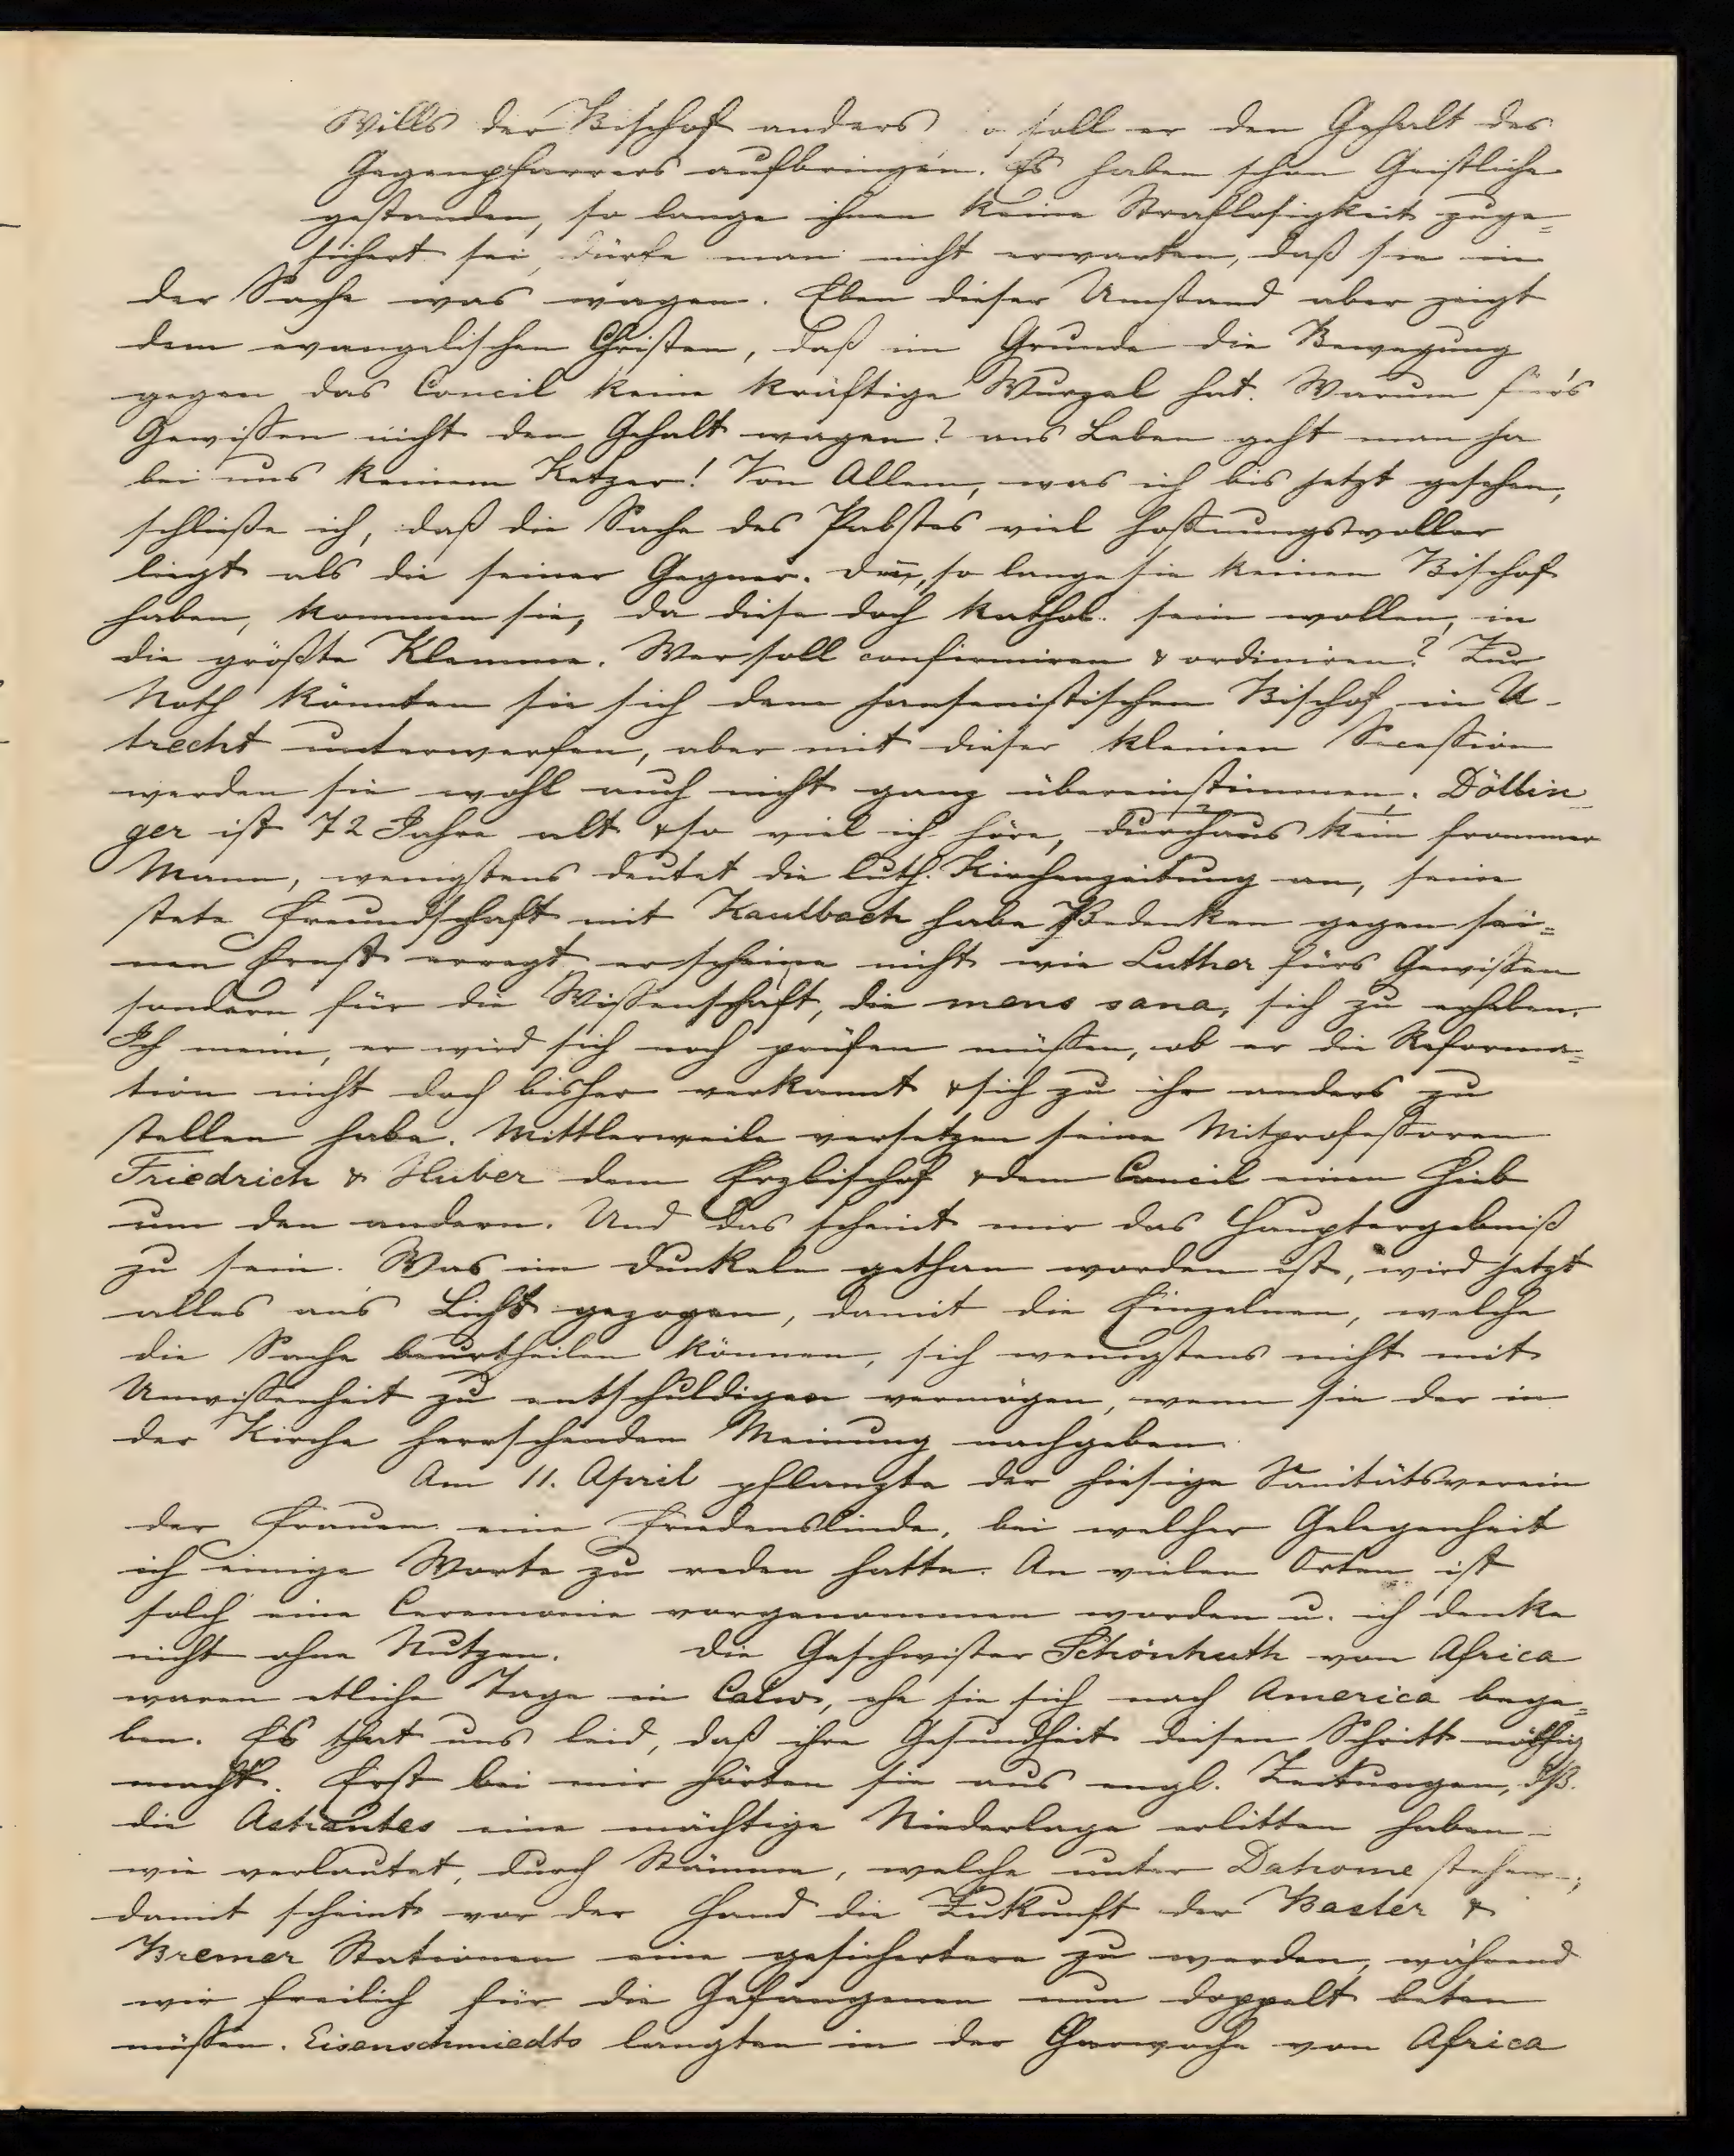 Wills der Bischof anders o soll er den Gehalt des
Gegenpfarrers aufbringen. Es haben schon Geistliche
gestanden, so lange ihnen keine Straflosigkeit zuge=
sichert sei, dürfe man nicht erwarten, daß sie in
der Sache was wagen. Eben dieser Umstand aber zeigt
dem evangelischen Christen, daß im Grunde die Bewegung
gegen das Concil keine kräftige Wurzel hat. Warum für's
Gewissen nicht den Gehalt wagen? ans Leben geht man ja
bei uns keinem Ketzer! Von Allem, was ich bis jetzt gesehen,
schließe ich, daß die Sache des Pabstes viel hoffnungsvoller
liegt als die seiner Gegner. Deñ, so lange sie keinen Bischof
haben, kommen sie, da diese doch kathol. sein wollen, in
die größte Klemme. Wer soll confirmiren & ordiniren? Zur
Noth könnten sie sich dem jansenistischen Bischof in U-
trecht unterwerfen, aber mit dieser kleinen Secession
werden sie wohl auch nicht ganz übereinstimmen. Döllin
ger ist 72 Jahre alt & so viel ich höre, durchaus kein frommer
Mann, wenigstens deutet die luth. Kirchenzeitung an, seine
stete Freundschaft mit Kaulbach habe Bedenken gegen sei=
nen Ernst erregt, er scheine nicht wie Luther fürs Gewissen
sondern für die Wissenschaft, die mens sana, sich zu erheben.
Ich meine, er wird sich noch prüfen müssen, ob er die Reforma=
tion nicht doch bisher verkannt & sich zu ihr anders zu
stellen habe. Mittlerweile versetzen seine Mitprofessoren
Friedrich & Huber dem Erzbischof & dem Concil einen Hieb
um den andern. Und das scheint mir das Hauptergebniß
zu sein. Was im Dunkeln gethan worden ist, wird jetzt
alles ans Licht gezogen, damit die Einzelnen, welche
die Sache beurtheilen können, sich wenigstens nicht mit
Unwissenheit zu entschuldigen vermögen, wenn sie der in
der Kirche herrschenden Meinung nachgeben.
Am 11. April pflanzte der hiesige Sanitätsverein
der Frauen eine Friedenslinde, bei welcher Gelegenheit
ich einige Worte zu reden hatte. An vielen Orten ist
solch eine Ceremonie vorgenommen worden u. ich denke
nicht ohne Nutzen. Die Geschwister Schönhuth von Africa
waren etliche Tage in Calw, ehe sie sich nach America bega=
ben. Es that uns leid, daß ihre Gesundheit diesen Schritt nöthig
macht. Erst bei mir hörten sie aus engl. Zeitungen, dß.
die Ashantes eine mächtige Niederlage erlitten haben -
wie verlautet, durch Stämme, welche unter Dahome stehen -;
damit scheint vor der Hand die Zukunft der Basler &
Bremer Stationen eine gesichertere zu werden, während
wir freilich für die Gefangenen nun doppelt beten
müssen. Eisenschmiedts langten in der Charwoche von Africa